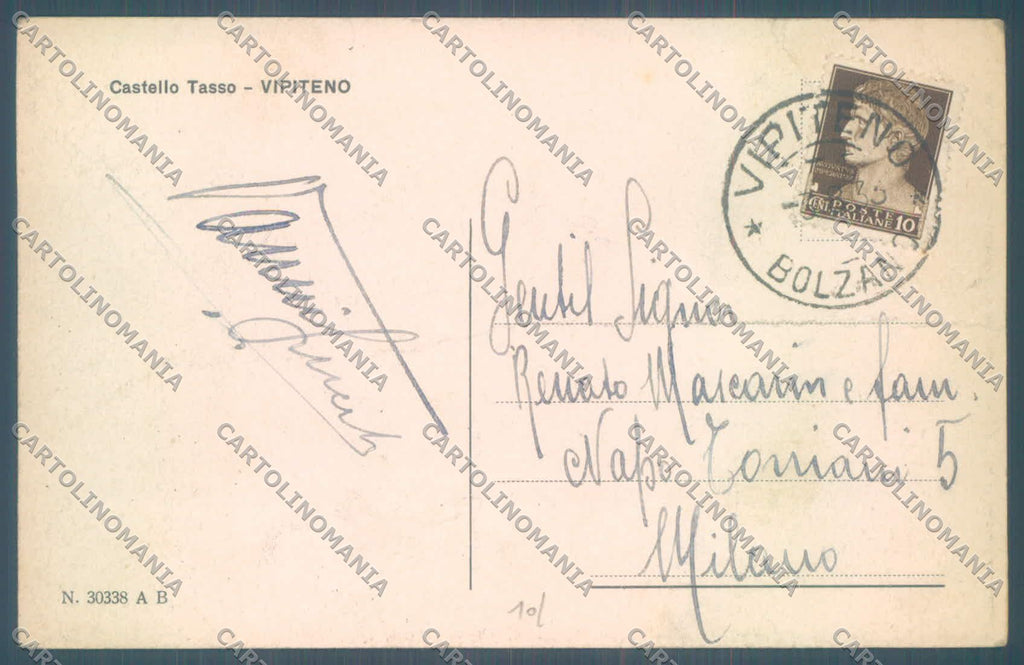 Castello Tasso – VIPITENO
VIPITENO
BOLZANO
POSTE
ITALIANE
CENT 10
Gentil Signor
Renato Mascarin e fam.
Napo Torriani 5
Milano
N. 30338 A B
10/
CARTOLINOMANIA